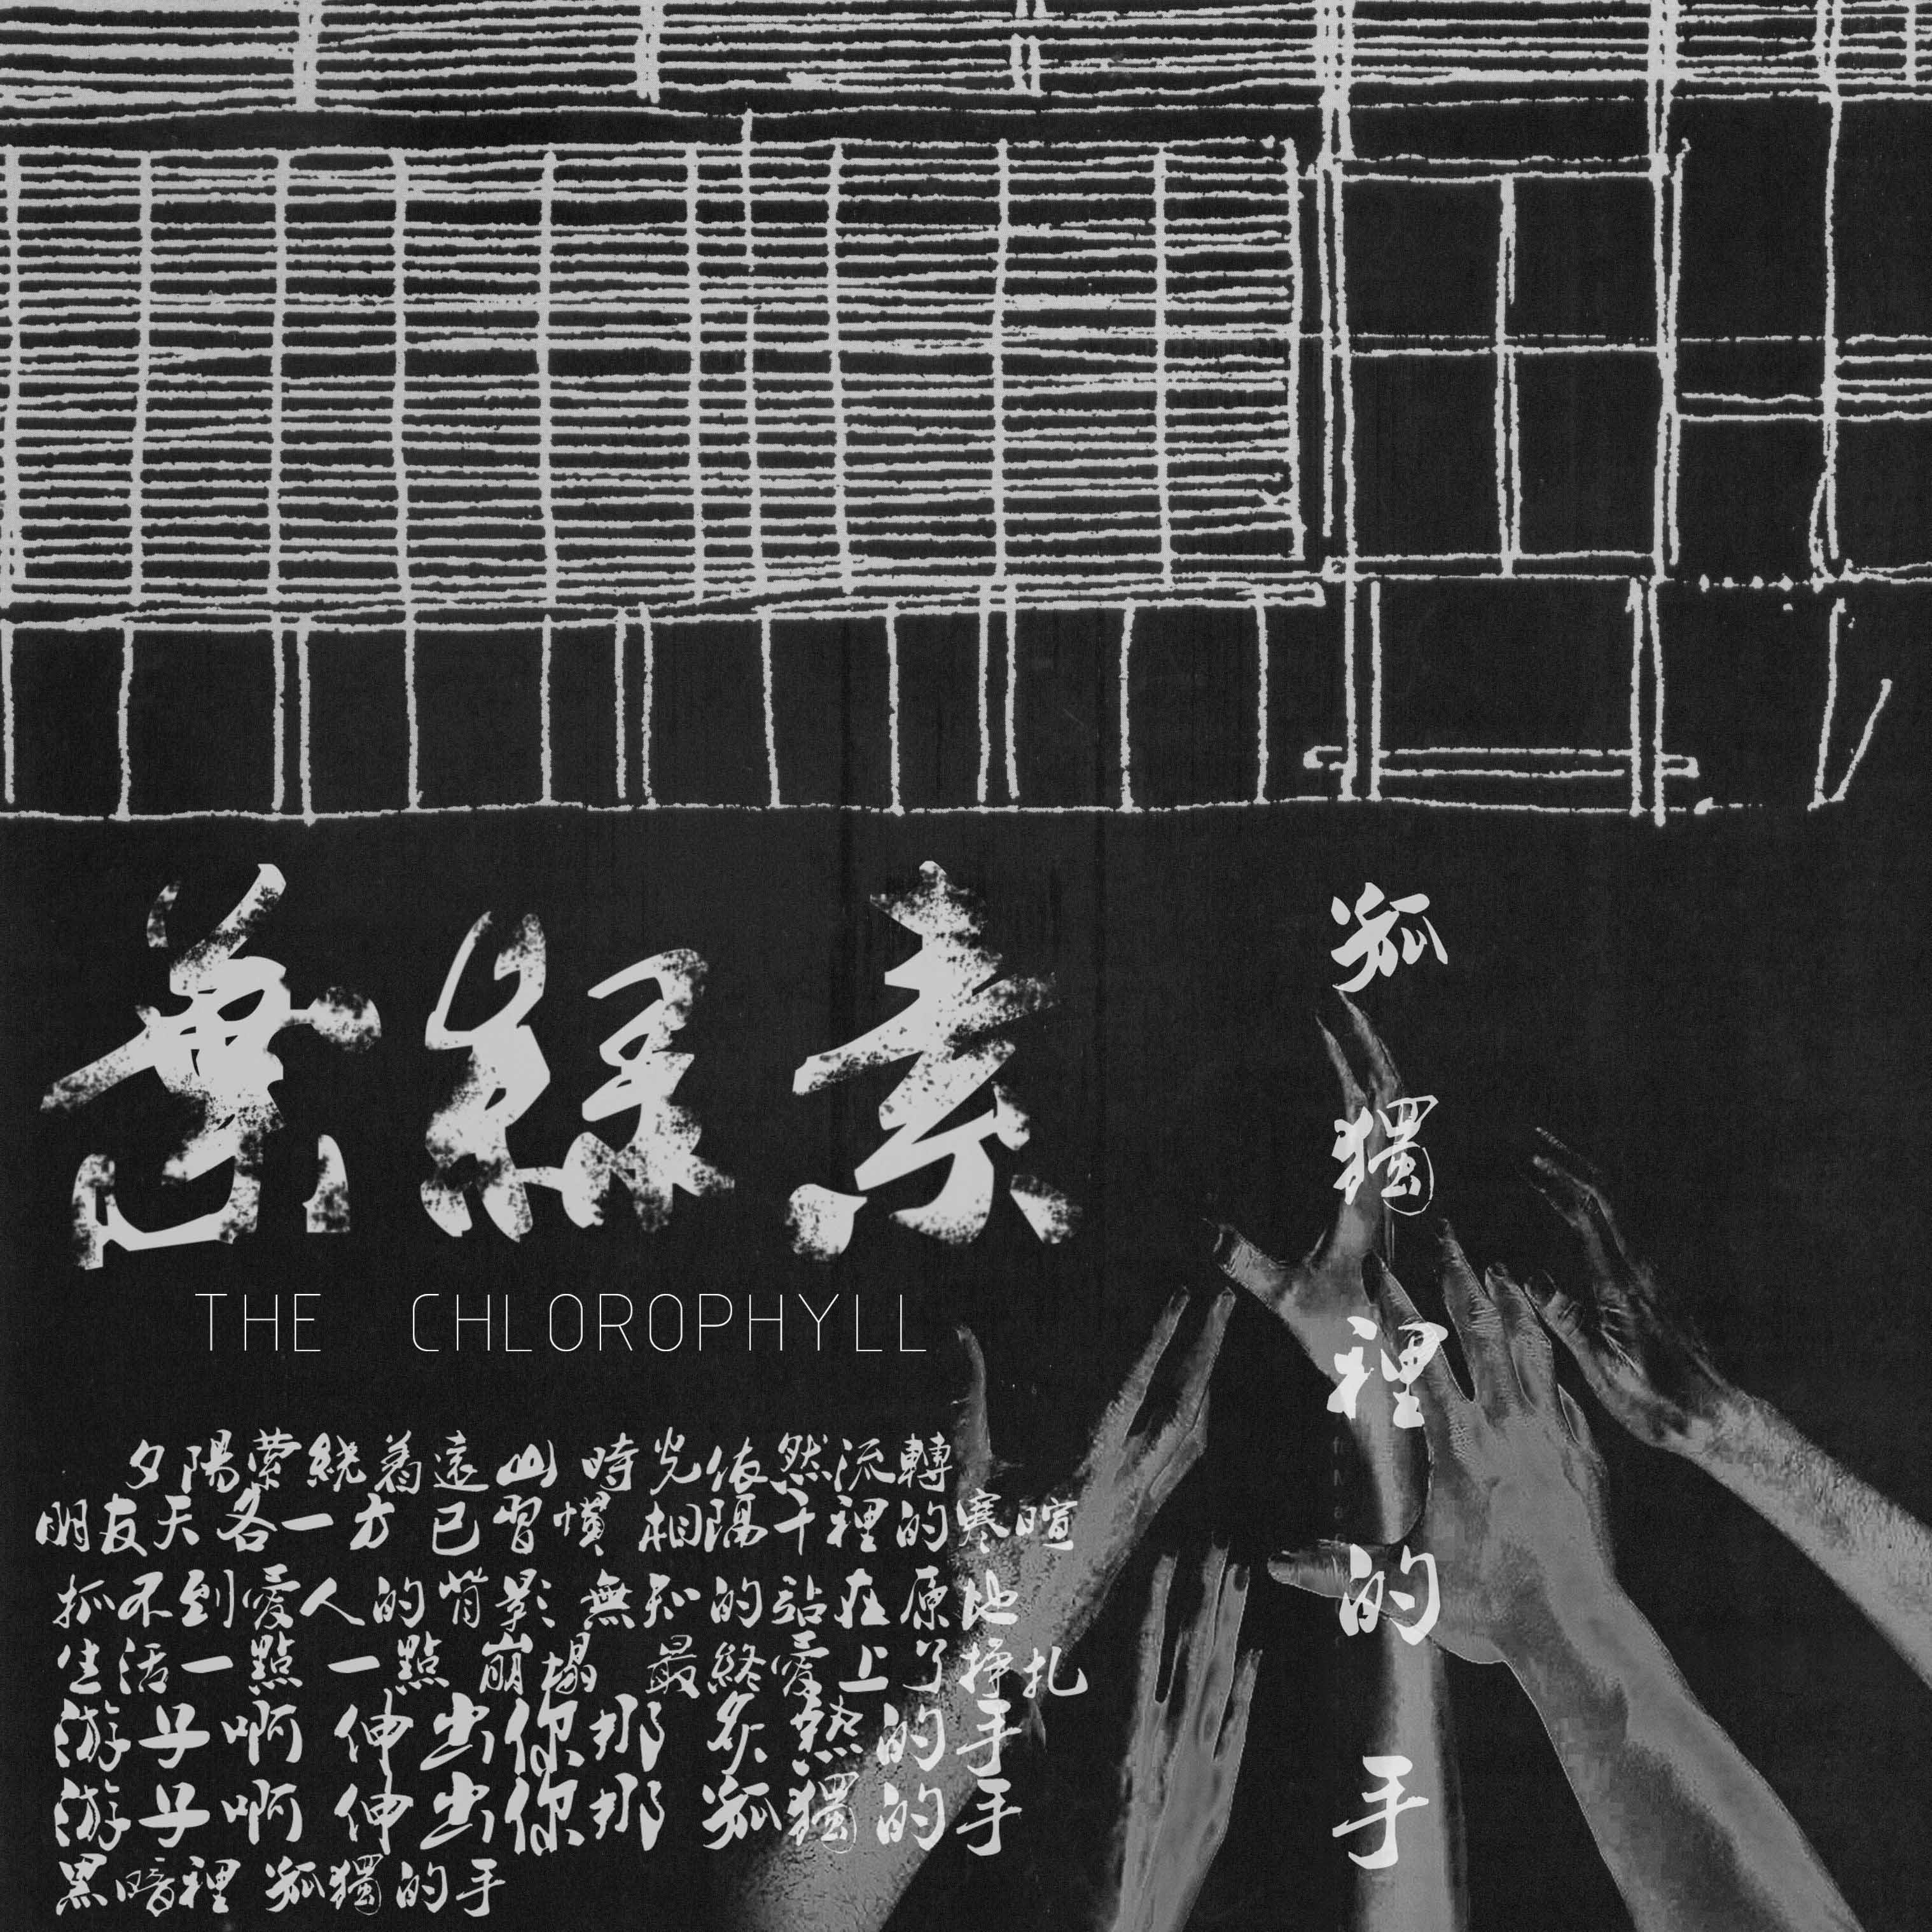 葉綠素
THE CHLOROPHYLL
孤獨裡的手
夕陽縈繞着遠山 時光依然流轉
朋友天各一方 已習慣 相隔千裡的寒暄
抓不到愛人的背影 無知的站在原地
生活一點 一點 崩塌 最終愛上了掙扎
游子啊 伸出你那 炙熱的手
游子啊 伸出你那 孤獨的手
黑暗裡 孤獨的手